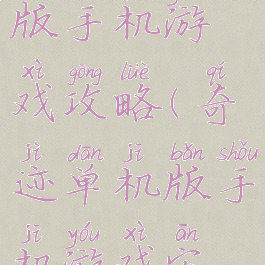 版手机游
xì gōng lüè qí
戏攻略(奇
jì dān jī bǎn shǒu
迹单机版手
jī yóu xì ān
机游戏安